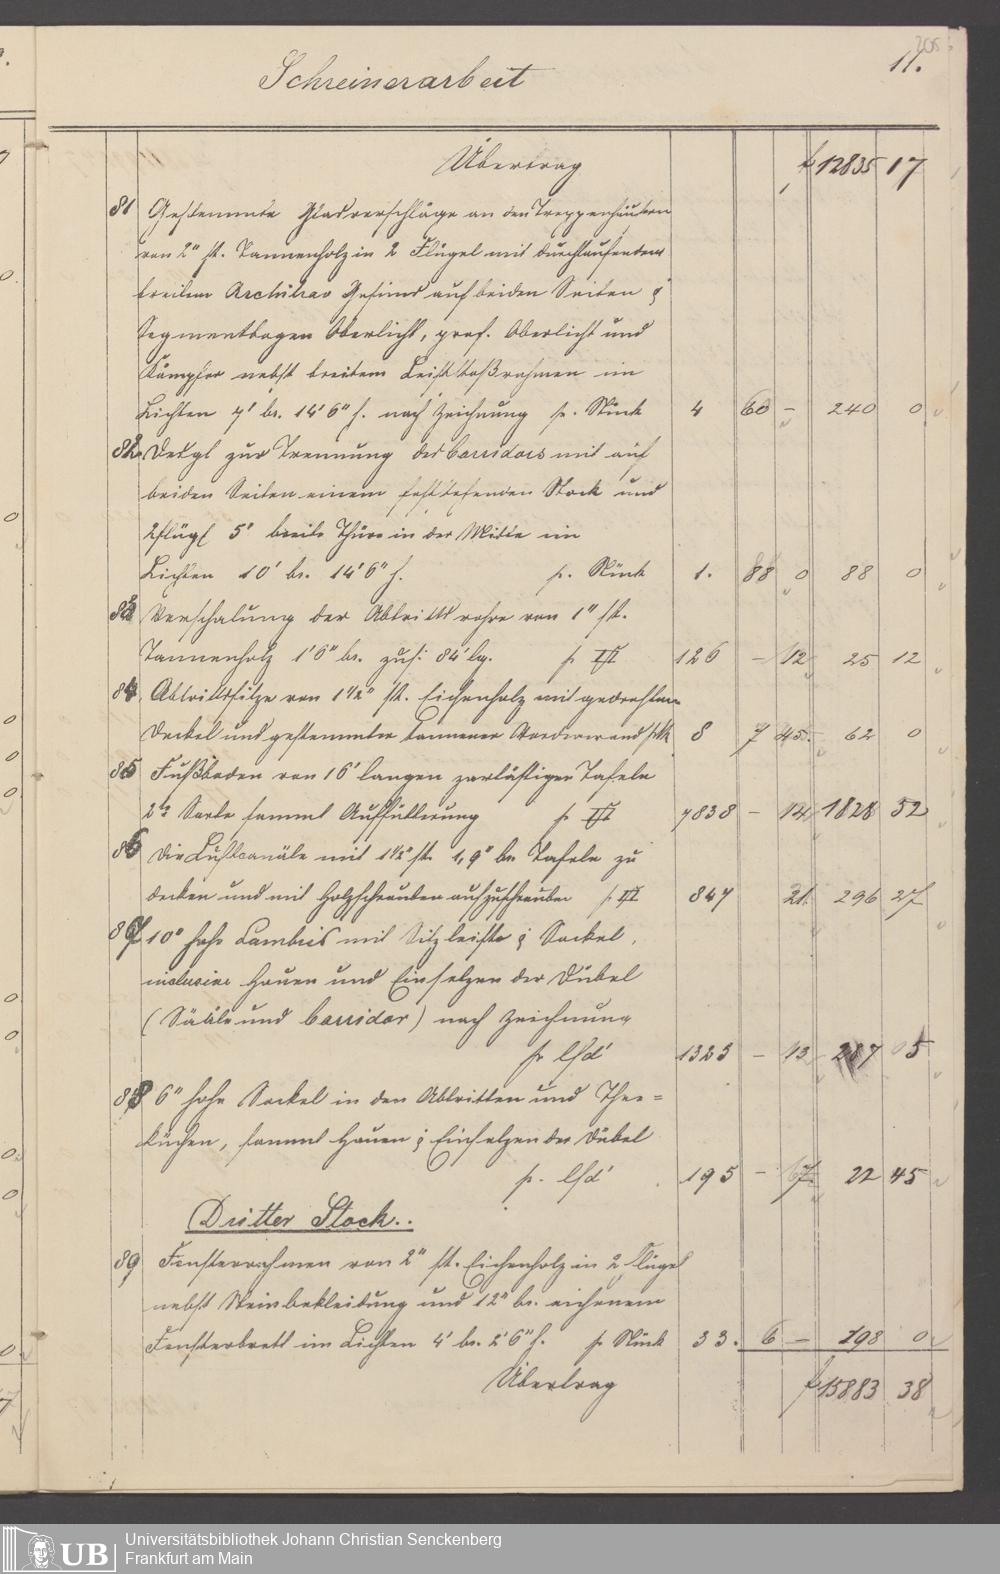 205
11.
Schreinerarbeit
Übertrag f 12835 17
81 Gestemmte Glasverschläge an den Treppenhäusern
von 2" st. Tannenholz in 2 Flügel mit durchlaufendem
breitem Architrav Gesims auf beiden Seiten &
Segmentbogen Oberlicht, prof. Oberlicht und
Kämpfer nebst breitem rahmen im
Lichten 7' br. 14' 6" h. nach Zeichnung p. Stück 4 60 - 240 0
82 Desgl zur Trennung des Corridors mit auf
beiden Seiten einem feststehenden Stock und
2flügl 5' breite Thüre in der Mitte im
Lichten 10' br. 14' 6" h. p. Stück 1. 88 0 88 0
83 Verschalung der Abtrittsrohre von 1" st.
Tannenholz 1' 6" br. zus: 84' lg. p □' 126 - 12 25 12
84 Abtrittsitze von 1 1/2" st. Eichenholz mit gedrehtem
Deckel und gestemmter tannener Vorderwand p. Stk 8 7 45. 62 0
85 Fußboden von 16' langen zerlästigen Tafeln
2r Sorte sammt Auffütterung p □' 7838 - 14 1828 52
86 Die Luftcanäle mit 1 1/2" st. 1,9" br Tafeln zu
decken und mit Holzschrauben aufzuschrauben p □' 847 21. 296 27
87 10" hohe Lambris mit Sitzleiste & Sockel,
inclusive Hauen und Einsetzen der Dübel
(Sääle und Corridor) nach Zeichnung
pr lfd' 1325 - 13 287 05
88 6" hohe Sockel in den Abtritten und Thee=
küchen, sammt Hauen & Einsetzen der Dübel
p. lfd' 195 - 67 22 45
Dritter Stock..
89 Fensterrahmen von 2" st. Eichenholz in 2 Flügel
nebst Steinbekleidung und 12" br. eichenem
Fensterbrett im Lichten 4' br. 2' 6" h. p Stück 33. 6 - 198 0
Übertrag f 15883 38
UB
Universitätsbibliothek Johann Christian Senckenberg
Frankfurt am Main